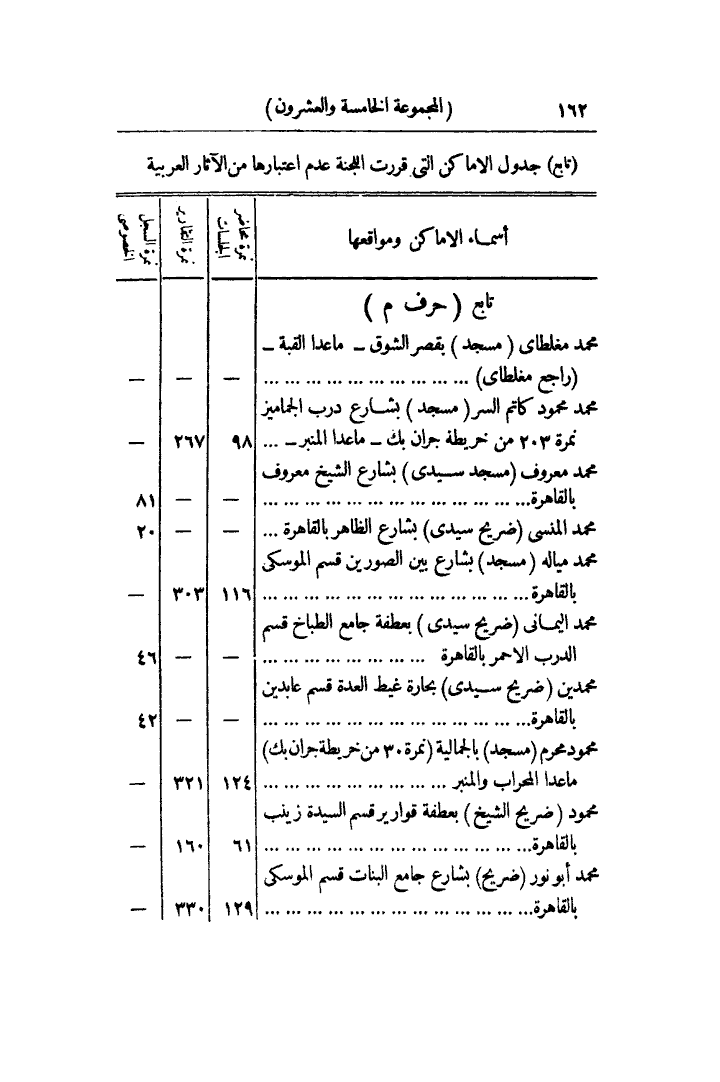 ١٦٢ (المجموعة الخامسة والعشرون)
(تابع) جدول الاماكن التى قررت اللجنة عدم اعتبارها من الآثار العربية
أسماء الاماكن ومواقعها
نمرة محاضر الجلسات
نمرة التقارير
نمرة السجل الخصوصى
تابع (حرف م)
محمد مغلطاى (مسجد) بقصر الشوق ــ ماعدا القبة ــ
(راجع مغلطاى) ... ... ... ... ... ... ... ... ... ... — — —
محمد محمود كاتم السر (مسجد) بشارع درب الجماميز
نمرة ٢٠٣ من خريطة جران بك ــ ماعدا المنبر ــ ... ٩٨ ٢٦٧ —
محمد معروف (مسجد سيدى) بشارع الشيخ معروف
بالقاهرة... ... ... ... ... ... ... ... ... ... ... ... ... — — ٨١
محمد المنسى (ضريح سيدى) بشارع الظاهر بالقاهرة ... — — ٢٠
محمد مياله (مسجد) بشارع بين الصورين قسم الموسكى
بالقاهرة... ... ... ... ... ... ... ... ... ... ... ... ... ١١٦ ٣٠٣ —
محمد اليمانى (ضريح سيدى) بعطفة جامع الطباخ قسم
الدرب الاحمر بالقاهرة ... ... ... ... ... ... ... ... — — ٤٦
محمدين (ضريح سيدى) بحارة غيط العدة قسم عابدين
بالقاهرة... ... ... ... ... ... ... ... ... ... ... ... ... — — ٤٢
محمود محرم (مسجد) بالجمالية (نمرة ٣٠ من خريطة جران بك)
ماعدا المحراب والمنبر ... ... ... ... ... ... ... ... ... ١٢٤ ٣٢١ —
محمود (ضريح الشيخ) بعطفة قوارير قسم السيدة زينب
بالقاهرة... ... ... ... ... ... ... ... ... ... ... ... ... ٦١ ١٦٠ —
محمد أبو نور (ضريح) بشارع جامع البنات قسم الموسكى
بالقاهرة... ... ... ... ... ... ... ... ... ... ... ... ... ١٢٩ ٣٣٠ —